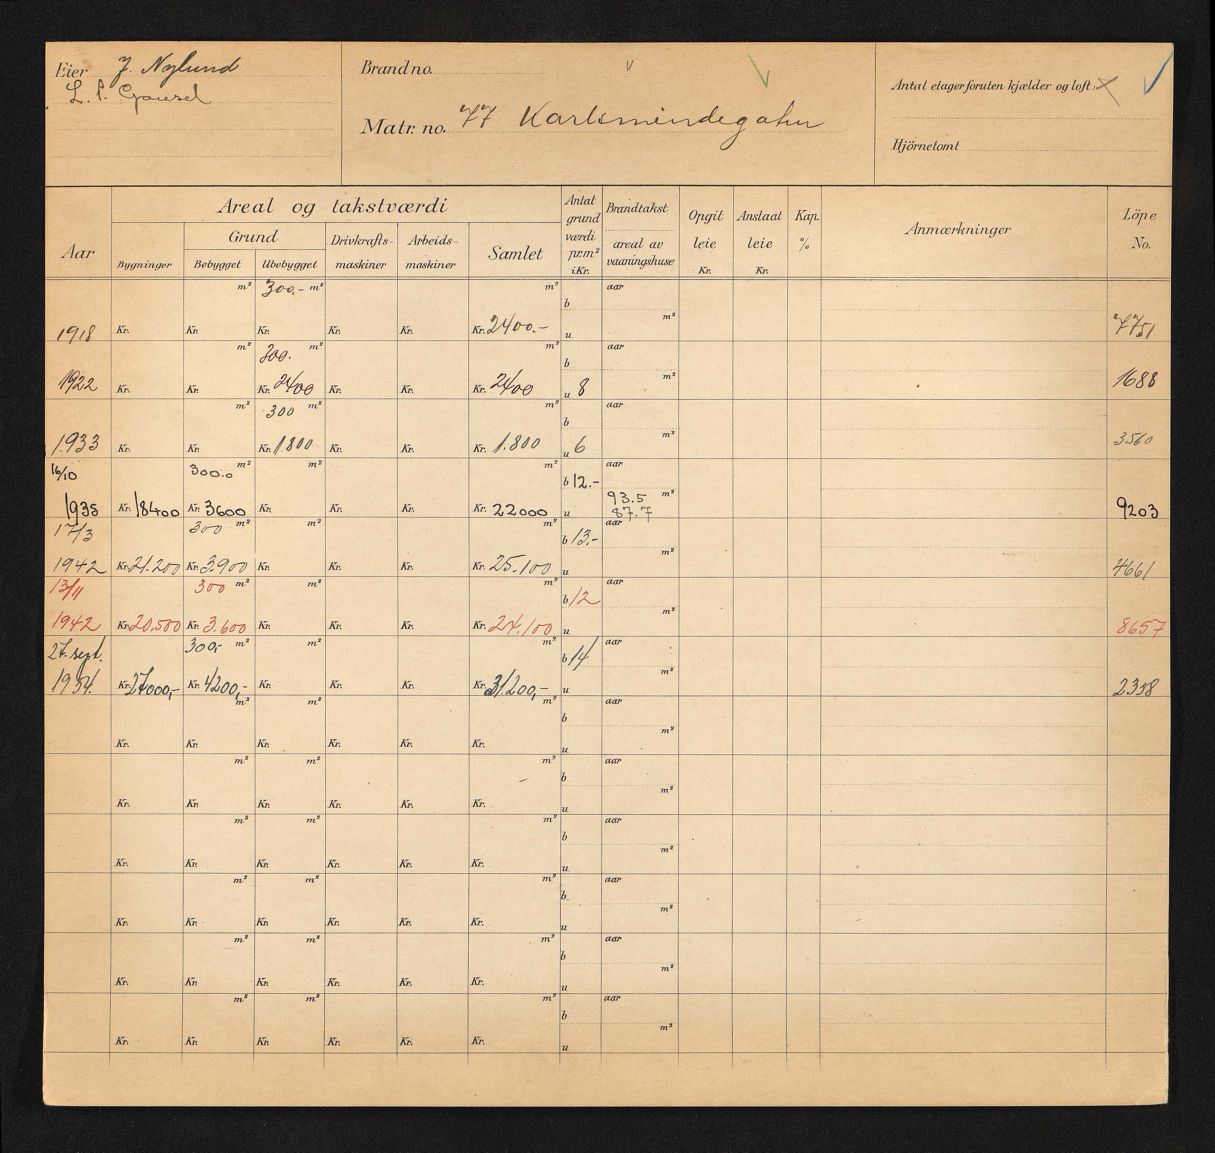 Eier J. Nylund
L. P. Gausel
Brand no.
Matr. no. 77 Karlsmindegaten
Antal etager foruten kjælder og loft:
Hjörnetomt
Aar
Areal og takstværdi
Bygninger
Grund
Bebygget Ubebygget
Drivkrafts-maskiner
Arbeids-maskiner
Samlet
Antat grundværdi pr. m² i Kr.
Brandtakst
areal av vaaningshuse
Opgit leie Kr.
Anslaat leie Kr.
Kap. %
Anmærkninger
Löpe No.
m² 300.- m² m² b aar
1918 Kr. Kr. Kr. Kr. Kr. Kr. 2400.- u m² 7751
m² 300. m² m² b aar
1922 Kr. Kr. Kr. 2400 Kr. Kr. Kr. 2400 u 8 m² 1688
m² 300 m² m² b aar
1933 Kr. Kr. Kr. 1.800 Kr. Kr. Kr. 1.800 u 6 m² 3560
16/10 300.0 m² m² m² b 12.- aar
93.5 m²
1935 Kr. 18400 Kr. 3600 Kr. Kr. Kr. Kr. 22000 u 87.7 9203
17/3 300 m² m² m² b 13.- aar
1942 Kr. 21.200 Kr. 3.900 Kr. Kr. Kr. Kr. 25.100 u m² 4661
13/11 300 m² m² m² b 12 aar
1942 Kr. 20.500 Kr. 3.600 Kr. Kr. Kr. Kr. 24.100 u m² 8657
27. sept. 300,- m² m² m² b 14 aar
1954. Kr. 27000,- Kr. 4200,- Kr. Kr. Kr. Kr. 31.200,- u m² 2358
m² m² m² b aar
Kr. Kr. Kr. Kr. Kr. Kr. u m²
m² m² m² b aar
Kr. Kr. Kr. Kr. Kr. Kr. u m²
m² m² m² b aar
Kr. Kr. Kr. Kr. Kr. Kr. u m²
m² m² m² b aar
Kr. Kr. Kr. Kr. Kr. Kr. u m²
m² m² m² b aar
Kr. Kr. Kr. Kr. Kr. Kr. u m²
m² m² m² b aar
Kr. Kr. Kr. Kr. Kr. Kr. u m²